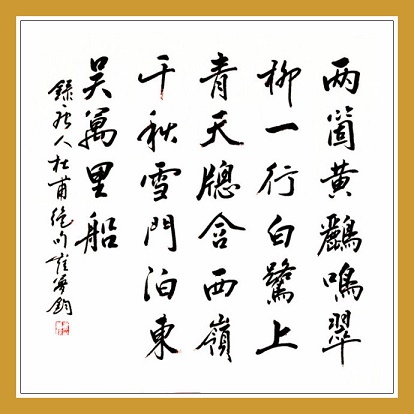 两箇黄鸝鳴翠
柳一行白鷺上
青天牕含西嶺
千秋雪門泊東
吴萬里船
錄唐人杜甫絶句